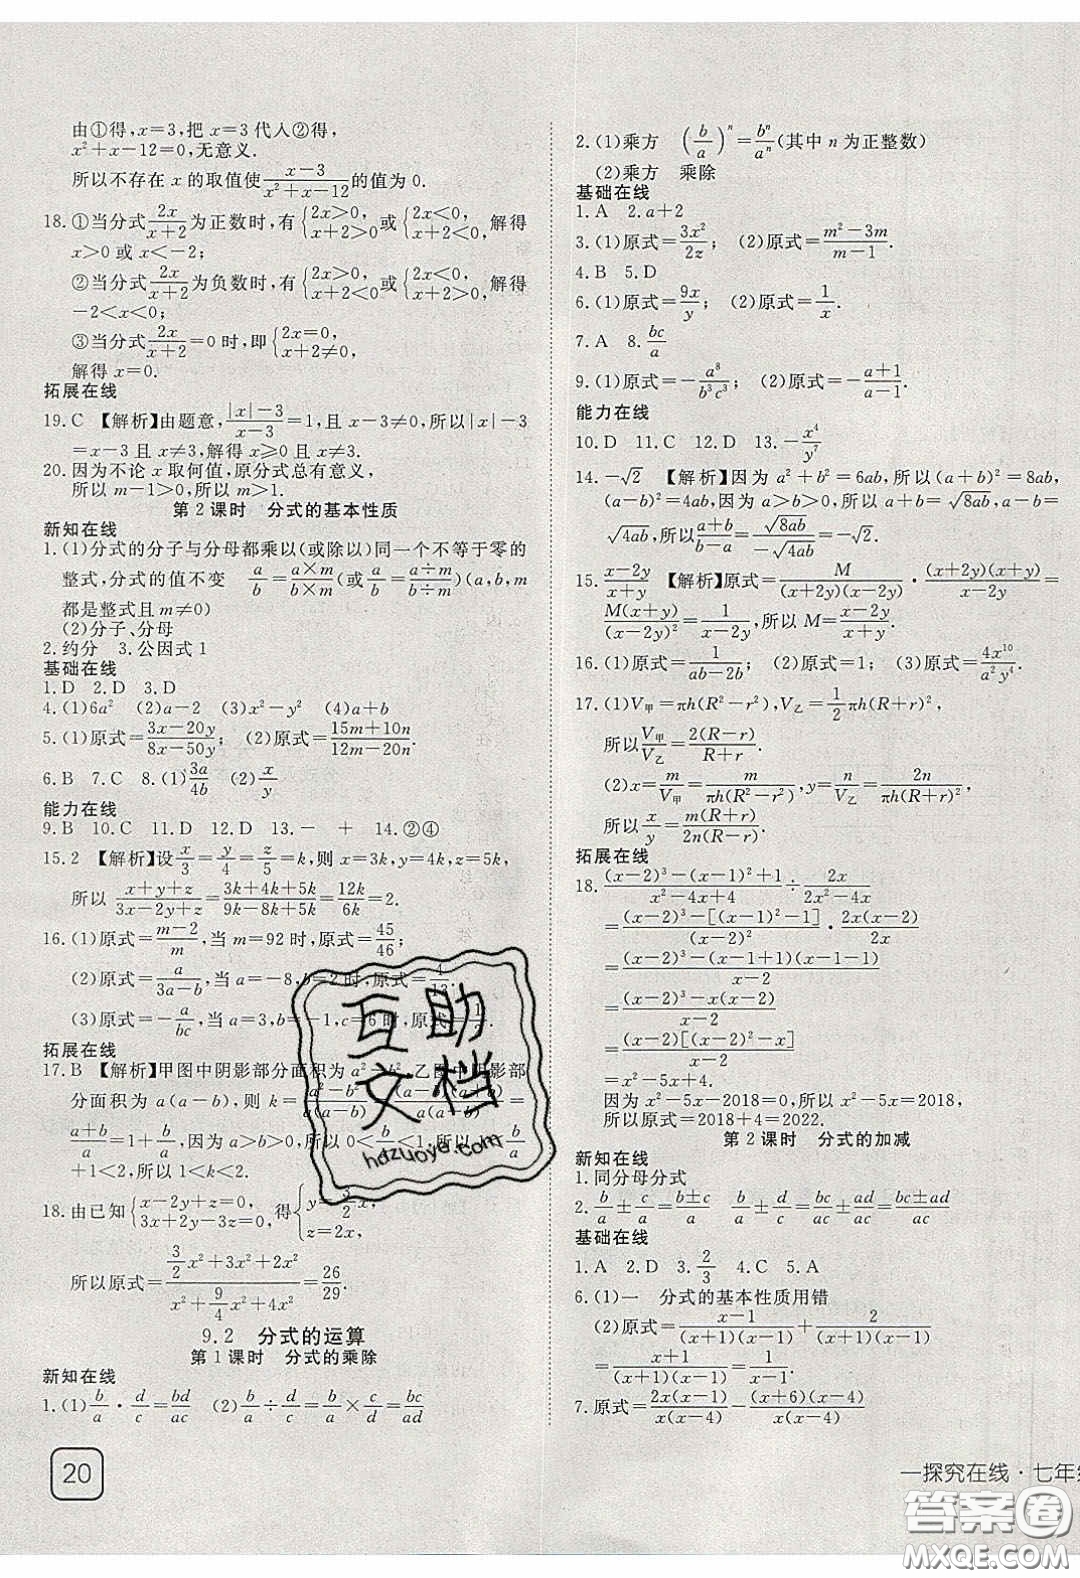 由①得，x=3，把 x=3 代入②得，
x²+x−12=0，无意义.
所以不存在 x 的取值使(x−3)/(x²+x−12)的值为 0.
18. ①当分式2x/(x+2)为正数时，有{2x>0, x+2>0或{2x<0, x+2<0，解得
x>0 或 x<−2；
②当分式2x/(x+2)为负数时，有{2x>0, x+2<0或{2x<0, x+2>0，解得
−2<x<0；
③当分式2x/(x+2)=0 时，即{2x=0, x+2≠0，
解得 x=0.
拓展在线
19. C 【解析】由题意，(|x|−3)/(x−3)=1，且 x−3≠0，所以|x|−3
=x−3 且 x≠3，解得 x≥0 且 x≠3.
20. 因为不论 x 取何值，原分式总有意义，
所以 m−1>0，所以 m>1.
第 2 课时 分式的基本性质
新知在线
1. (1)分式的分子与分母都乘以(或除以)同一个不等于零的
整式，分式的值不变 a/b=(a×m)/(b×m)(或a/b=(a÷m)/(b÷m))(a,b,m
都是整式且 m≠0)
(2)分子、分母
2. 约分 3. 公因式 1
基础在线
1. D 2. D 3. D
4. (1)6a² (2)a−2 (3)x²−y² (4)a+b
5. (1)原式=(3x−20y)/(8x−50y)； (2)原式=(15m+10n)/(12m−20n).
6. B 7. C 8. (1)3a/4b (2)x/y
能力在线
9. B 10. C 11. D 12. D 13. − + 14. ②④
15. 2 【解析】设x/3=y/4=z/5=k，则 x=3k，y=4k，z=5k，
所以(x+y+z)/(3x−2y+z)=(3k+4k+5k)/(9k−8k+5k)=12k/6k=2.
16. (1)原式=(m−2)/m，当 m=92 时，原式=45/46；
(2)原式=a/(3a−b)，当 a=−8，b=2 时，原式=4/13.
(3)原式=−a/bc，当 a=3，b=−1，c=6 时，原式=
拓展在线
17. B 【解析】甲图中阴影部分面积为 a²−b²，乙图中阴影部
分面积为 a(a−b)，则 k=(a²−b²)/(a(a−b))=((a−b)(a+b))/(a(a−b))=
(a+b)/a=1+b/a，因为 a>b>0，所以 0<b/a<1，所以 b/a
+1<2，所以 1<k<2.
18. 由已知{x−2y+z=0, 3x+2y−z=0，得{y=3/2x,
所以原式=(3/2x²+3x²+2x²)/(x²+9/4x²+4x²)=26/29.
9.2 分式的运算
第 1 课时 分式的乘除
新知在线
1. (1)b/a·d/c=bd/ac (2)b/a÷d/c=b/a×c/d=bc/ad
20
2. (1)乘方 (b/a)ⁿ=bⁿ/aⁿ(其中 n 为正整数)
(2)乘方 乘除
基础在线
1. A 2. a+2
3. (1)原式=3x²/2z； (2)原式=(m²−3m)/(m−1).
4. B 5. D
6. (1)原式=9x/y； (2)原式=1/x.
7. A 8. bc/a
9. (1)原式=−a⁸/(b³c³)； (2)原式=−(a+1)/(a−1).
能力在线
10. D 11. C 12. D 13. −x⁴/y⁷
14. −√2 【解析】因为 a²+b²=6ab，所以(a+b)²=8ab，
(a−b)²=4ab，又因为 a>b>0，所以 a+b=√8ab，a−b=
√4ab，所以(a+b)/(b−a)=√8ab/(−√4ab)=−√2.
15. (x−2y)/(x+y) 【解析】原式=M/((x+2y)(x−2y))·((x+2y)(x+y))/(x−2y)=
M(x+y)/(x−2y)²=1/(x−2y)，所以 M=(x−2y)/(x+y).
16. (1)原式=1/(ab−2b)； (2)原式=4x¹⁰/(a²y⁴).
17. (1)V甲=πh(R²−r²)，V乙=1/2πh(R+r)²，
所以V甲/V乙=2(R−r)/(R+r).
(2)x=m/V甲=m/(πh(R²−r²))，y=n/V乙=2n/(πh(R+r)²)，
所以x/y=m(R+r)/(2n(R−r)).
拓展在线
18. ((x−2)³−(x−1)²+1)/(x²−4x+4)÷2x/(2x²−4x)
=((x−2)³−[(x−1)²−1])/(x−2)²·2x(x−2)/2x
=((x−2)³−(x−1+1)(x−1−1))/(x−2)
=((x−2)³−x(x−2))/(x−2)
=(x−2)[(x−2)²−x]/(x−2)
=x²−5x+4.
因为 x²−5x−2018=0，所以 x²−5x=2018，
所以原式=2018+4=2022.
第 2 课时 分式的加减
新知在线
1. 同分母分式
2. b/a±c/a=(b±c)/a b/a±d/c=bc/ac±ad/ac=(bc±ad)/ac
基础在线
1. A 2. D 3. 2/3 4. C 5. A
6. (1)一 分式的基本性质用错
(2)原式=(x−1)/((x+1)(x−1))+2/((x+1)(x−1))
=(x+1)/((x+1)(x−1))=1/(x−1).
7. 原式=2x(x−1)/(x(x−4))−((x+6)(x−4))/(x(x−4))
一探究在线·七年
互助
文档
hdzuoye.com
答案圈
MXQE.COM